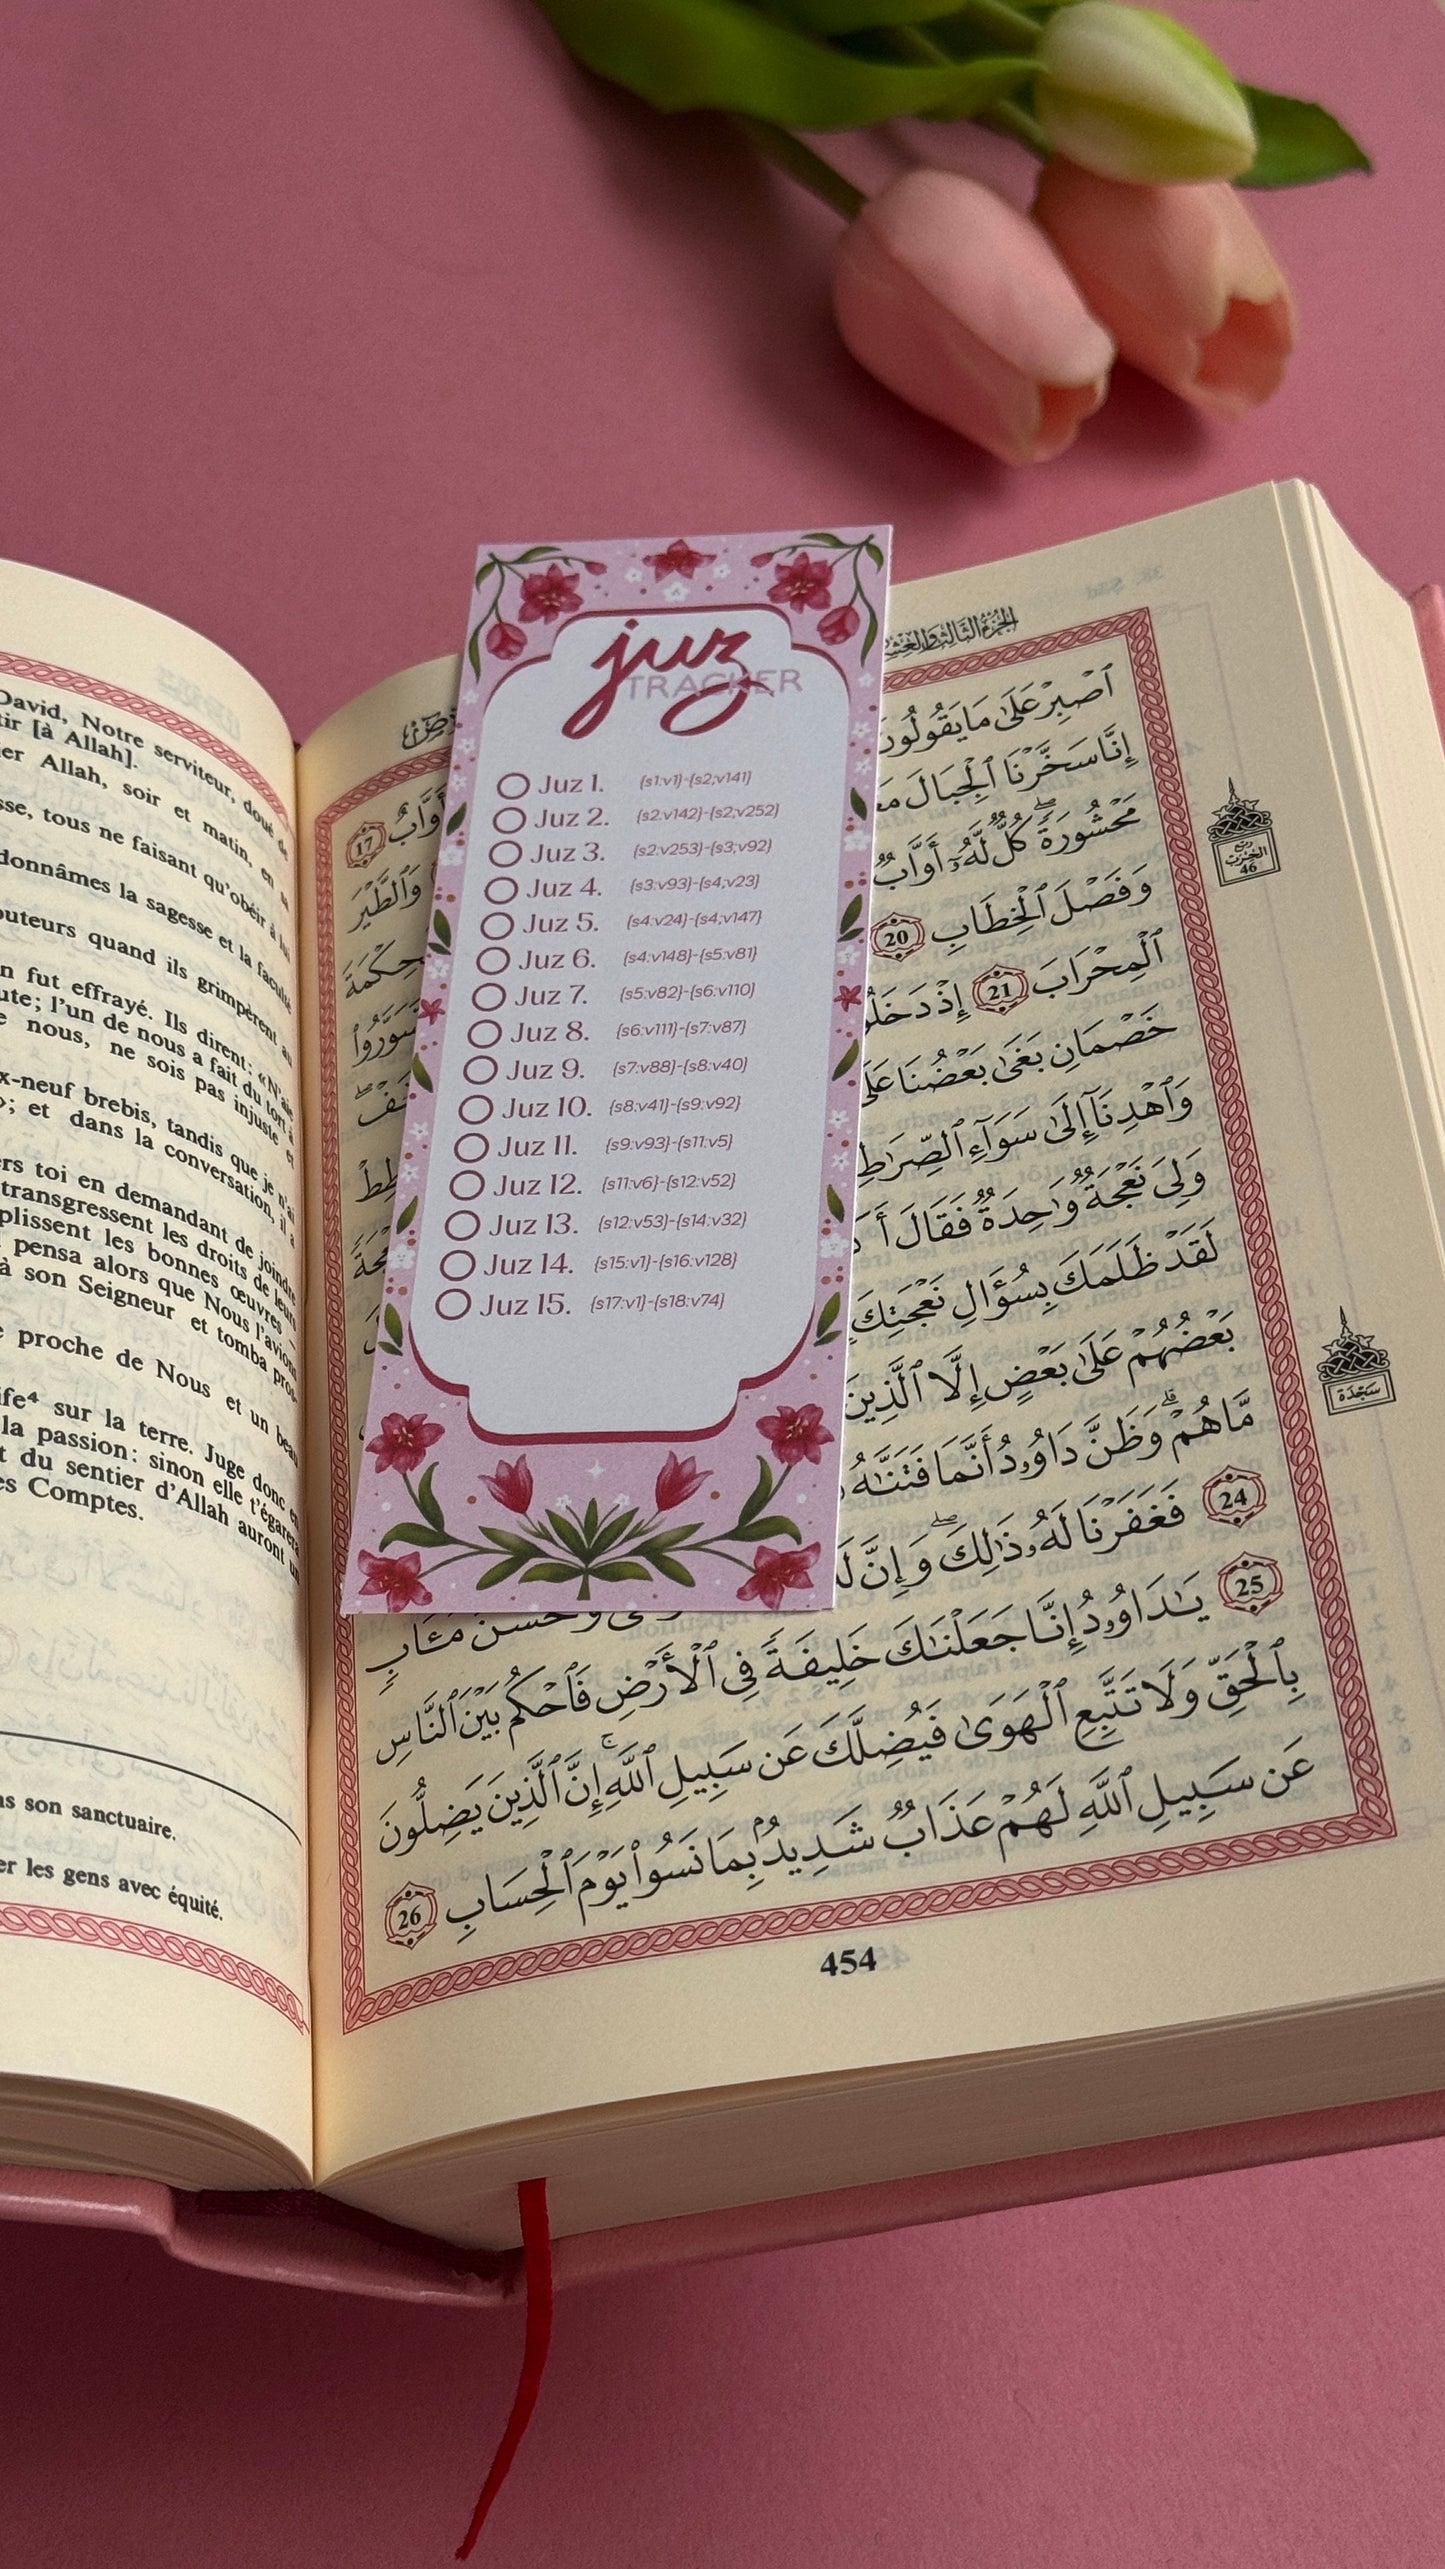 David, Notre serviteur, doué de
tir [à Allah].
er Allah, soir et matin, en
sse, tous ne faisant qu'obéir à lui
donnâmes la sagesse et la faculté
outeurs quand ils grimpèrent au
n fut effrayé. Ils dirent: «N'aie
ute; l'un de nous a fait du tort à
e nous, ne sois pas injuste et
x-neuf brebis, tandis que je n'ai
»; et dans la conversation, il a
ers toi en demandant de joindre
transgressent les droits de leurs
plissent les bonnes œuvres –
pensa alors que Nous l'avions
à son Seigneur et tomba pros-
e proche de Nous et un beau
ife⁴ sur la terre. Juge donc en
la passion: sinon elle t'égarera
t du sentier d'Allah auront un
es Comptes.
ns son sanctuaire.
er les gens avec équité.
juz
TRACKER
Juz 1. {s1:v1}-{s2;v141}
Juz 2. {s2:v142}-{s2;v252}
Juz 3. {s2:v253}-{s3;v92}
Juz 4. {s3:v93}-{s4;v23}
Juz 5. {s4:v24}-{s4;v147}
Juz 6. {s4:v148}-{s5:v81}
Juz 7. {s5:v82}-{s6:v110}
Juz 8. {s6:v111}-{s7:v87}
Juz 9. {s7:v88}-{s8:v40}
Juz 10. {s8:v41}-{s9:v92}
Juz 11. {s9:v93}-{s11:v5}
Juz 12. {s11:v6}-{s12:v52}
Juz 13. {s12:v53}-{s14:v32}
Juz 14. {s15:v1}-{s16:v128}
Juz 15. {s17:v1}-{s18:v74}
الجزء الثالث والعش
ٱصۡبِرۡ عَلَىٰ مَا يَقُولُونَ أَوَّابٌ 17
إِنَّا سَخَّرۡنَا ٱلۡجِبَالَ مَعَ وَٱلطَّيۡرَ
مَحۡشُورَةٗۖ كُلّٞ لَّهُۥٓ أَوَّابٞ لۡحِكۡمَةَ
وَفَصۡلَ ٱلۡخِطَابِ 20 سَوَّرُواْ
ٱلۡمِحۡرَابَ 21 إِذۡ دَخَلُو تَخَفۡۖ
خَصۡمَانِ بَغَىٰ بَعۡضُنَا عَلَىٰ تُشۡطِطۡ
وَٱهۡدِنَآ إِلَىٰ سَوَآءِ ٱلصِّرَٰطِ نَعۡجَةٗ
وَلِيَ نَعۡجَةٞ وَٰحِدَةٞ فَقَالَ أَكۡ
لَقَدۡ ظَلَمَكَ بِسُؤَالِ نَعۡجَتِكَ
بَعۡضُهُمۡ عَلَىٰ بَعۡضٍ إِلَّا ٱلَّذِينَ
مَّا هُمۡۗ وَظَنَّ دَاوُۥدُ أَنَّمَا فَتَنَّٰهُ
24 فَغَفَرۡنَا لَهُۥ ذَٰلِكَۖ وَإِنَّ لَهُ
وَحُسۡنَ مَـَٔابٖ
25 يَٰدَاوُۥدُ إِنَّا جَعَلۡنَٰكَ خَلِيفَةٗ فِي ٱلۡأَرۡضِ فَٱحۡكُم بَيۡنَ ٱلنَّاسِ
بِٱلۡحَقِّ وَلَا تَتَّبِعِ ٱلۡهَوَىٰ فَيُضِلَّكَ عَن سَبِيلِ ٱللَّهِۚ إِنَّ ٱلَّذِينَ يَضِلُّونَ
عَن سَبِيلِ ٱللَّهِ لَهُمۡ عَذَابٞ شَدِيدُۢ بِمَا نَسُواْ يَوۡمَ ٱلۡحِسَابِ 26
ربع
الحزب
46
سجدة
454